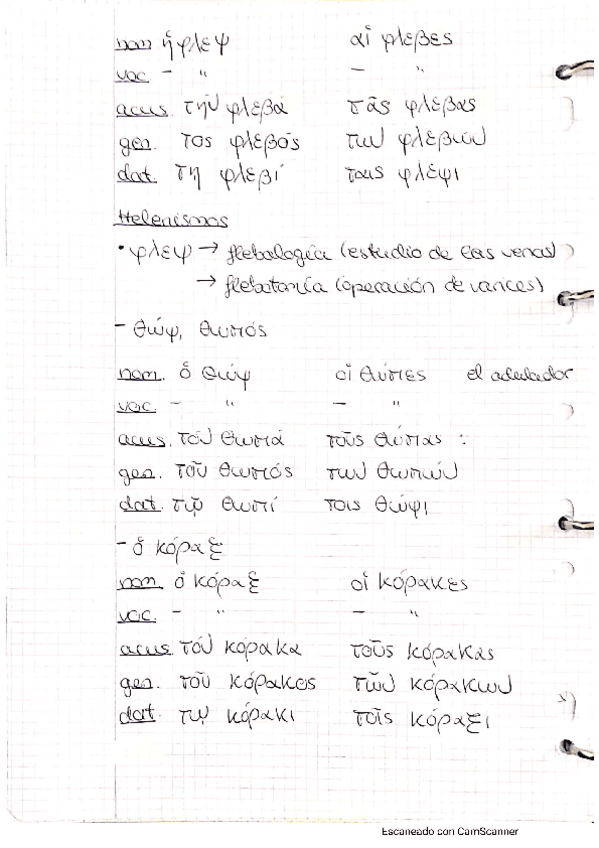 nom ἡ φλεψ αἱ φλεβες
voc – " – "
acus τὴν φλεβά τᾶς φλεβας
gen. τος φλεβός των φλεβών
dat. τη φλεβί ταις φλεψι
Helenismos
• φλεψ → flebología (estudio de las venas)
→ flebotomía (operación de varices)
– θώψ, θωπός
nom. ὁ θώψ οἱ θώπες el adulador
voc – " – "
acus. τόν θωπά τοῦς θώπας :
gen. τοῦ θωπός των θωπών
dat. τῷ θωπί τοις θώψι
– ὁ κόραξ
nom. ὁ κόραξ οἱ κόρακες
voc. – " – "
acus τόν κόρακα τοῦς κόρακας
gen. τοῦ κόρακος τῶν κόρακων
dat τῳ κόρακι τοῖς κόραξι
Escaneado con CamScanner